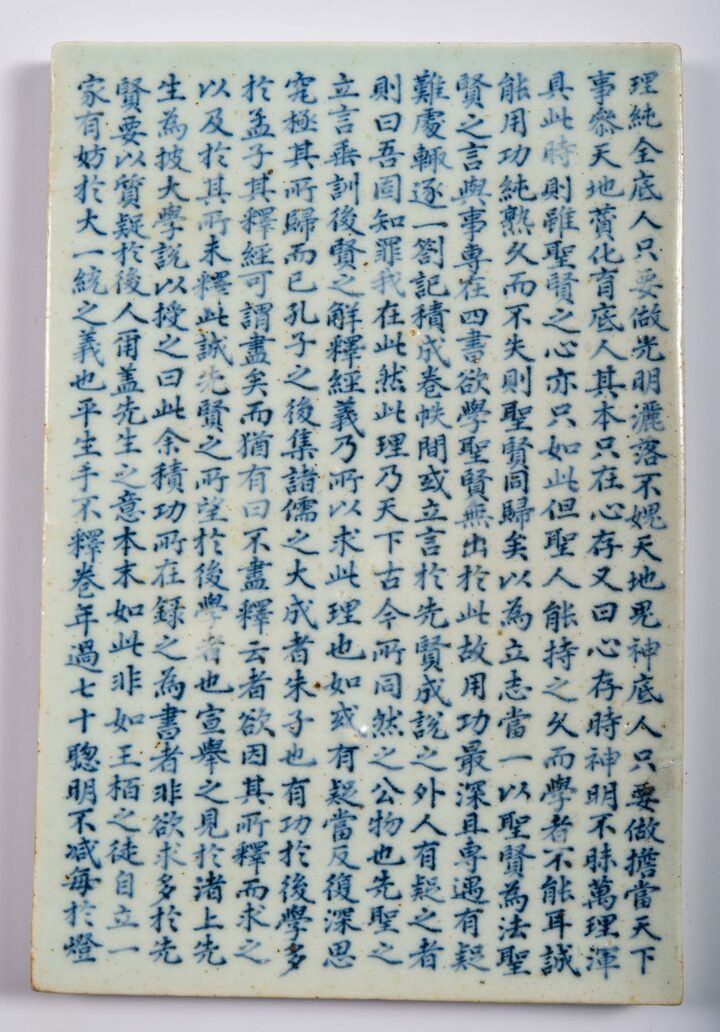 理純全底人只要做光明灑落不媿天地鬼神底人只要做擔當天下
事叅天地贊化育底人其本只在心存又曰心存時神明不昧萬理渾
具此時則雖聖賢之心亦只如此但聖人能持之久而學者不能耳誠
能用功純熟久而不失則聖賢同歸矣以為立志當一以聖賢為法聖
賢之言與事專在四書欲學聖賢無出於此故用功最深且專遇有疑
難處輒逐一劄記積成卷帙間或立言於先賢成說之外人有疑之者
則曰吾固知罪我在此然此理乃天下古今所同然之公物也先聖之
立言垂訓後賢之解釋經義乃所以求此理也如或有疑當反復深思
究極其所歸而已孔子之後集諸儒之大成者朱子也有功於後學多
於孟子其釋經可謂盡矣而猶有曰不盡釋云者欲因其所釋而求之
以及於其所未釋此誠先賢之所望於後學者也宣擧之見於渚上先
生為披大學說以授之曰此余積功所在錄之為書者非欲求多於先
賢要以質疑於後人甭盖先生之意本末如此非如王栢之徒自立一
家有妨於大一統之義也平生手不釋卷年過七十聰明不减每於燈